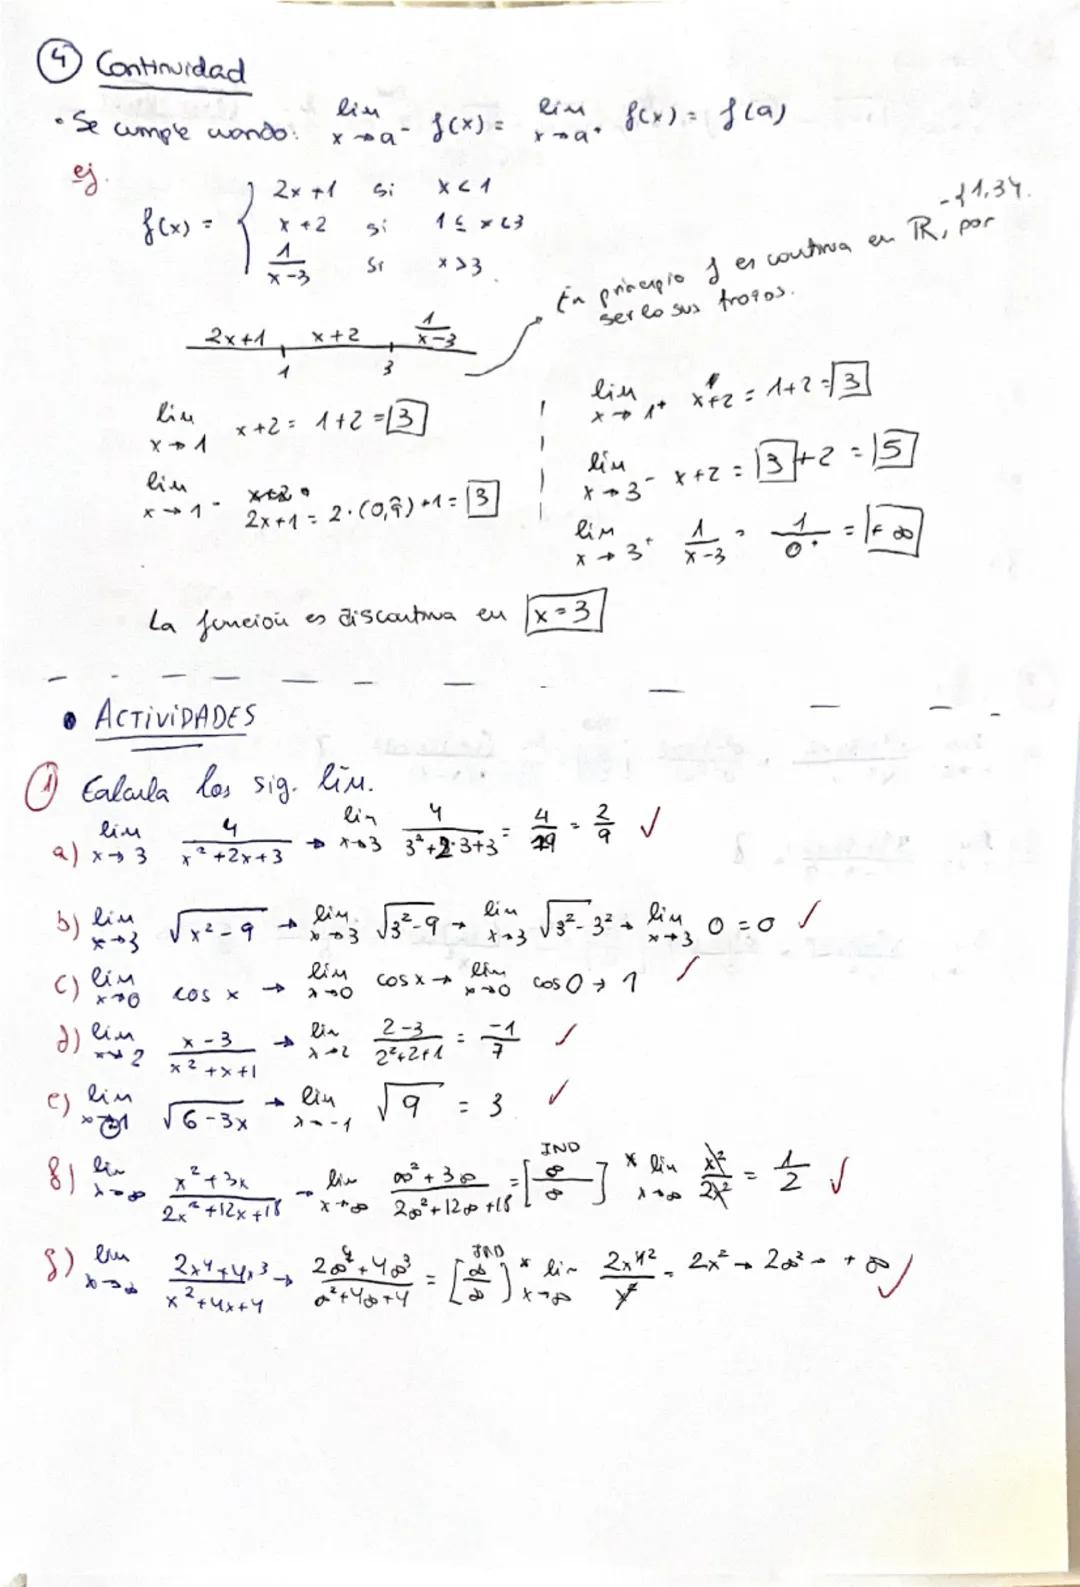 ④ Continuidad
• Se cumple cuando: lim x→a⁻ f(x) = lim x→a⁺ f(x) = f(a)
ej.
f(x) = { 2x+1 si x<1
x+2 si 1≤x<3
1/(x-3) si x>3.
En principio f es continua en ℝ, por -{1,3}.
serlo sus trozos.
2x+1 x+2 1/(x-3)
1 3
lim x→1 x+2 = 1+2 = 3
lim x→1⁻ 2x+1 = 2·(0,9̂)+1 = 3
lim x→1⁺ x+2 = 1+2 = 3
lim x→3⁻ x+2 = 3+2 = 5
lim x→3⁺ 1/(x-3) = 1/0⁺ = +∞
La función es discontinua en x=3
• ACTIVIDADES
① Calcula los sig. lím.
a) lim x→3 4/(x²+2x+3) → lim x→3 4/(3²+2·3+3) = 4/18 = 2/9 ✓
b) lim x→3 √(x²-9) → lim x→3 √(3²-9) → lim x→3 √(3²-3²) → lim x→3 0 = 0 ✓
c) lim x→0 cos x → lim x→0 cos x → lim x→0 cos 0 → 1 ✓
d) lim x→2 (x-3)/(x²+x+1) → lim x→2 (2-3)/(2²+2+1) = -1/7 ✓
e) lim x→-1 √(6-3x) → lim x→-1 √9 = 3 ✓
f) lim x→∞ (x²+3x)/(2x²+12x+18) → lim x→∞ (∞²+3∞)/(2∞²+12∞+18) = [∞/∞] IND * lim x→∞ x²/2x² = 1/2 ✓
g) lim x→∞ (2x⁴+4x³)/(x²+4x+4) → (2∞⁴+4∞³)/(∞²+4∞+4) = [∞/∞] IND * lim x→∞ 2x⁴²/x² = 2x² → 2∞² → +∞ ✓